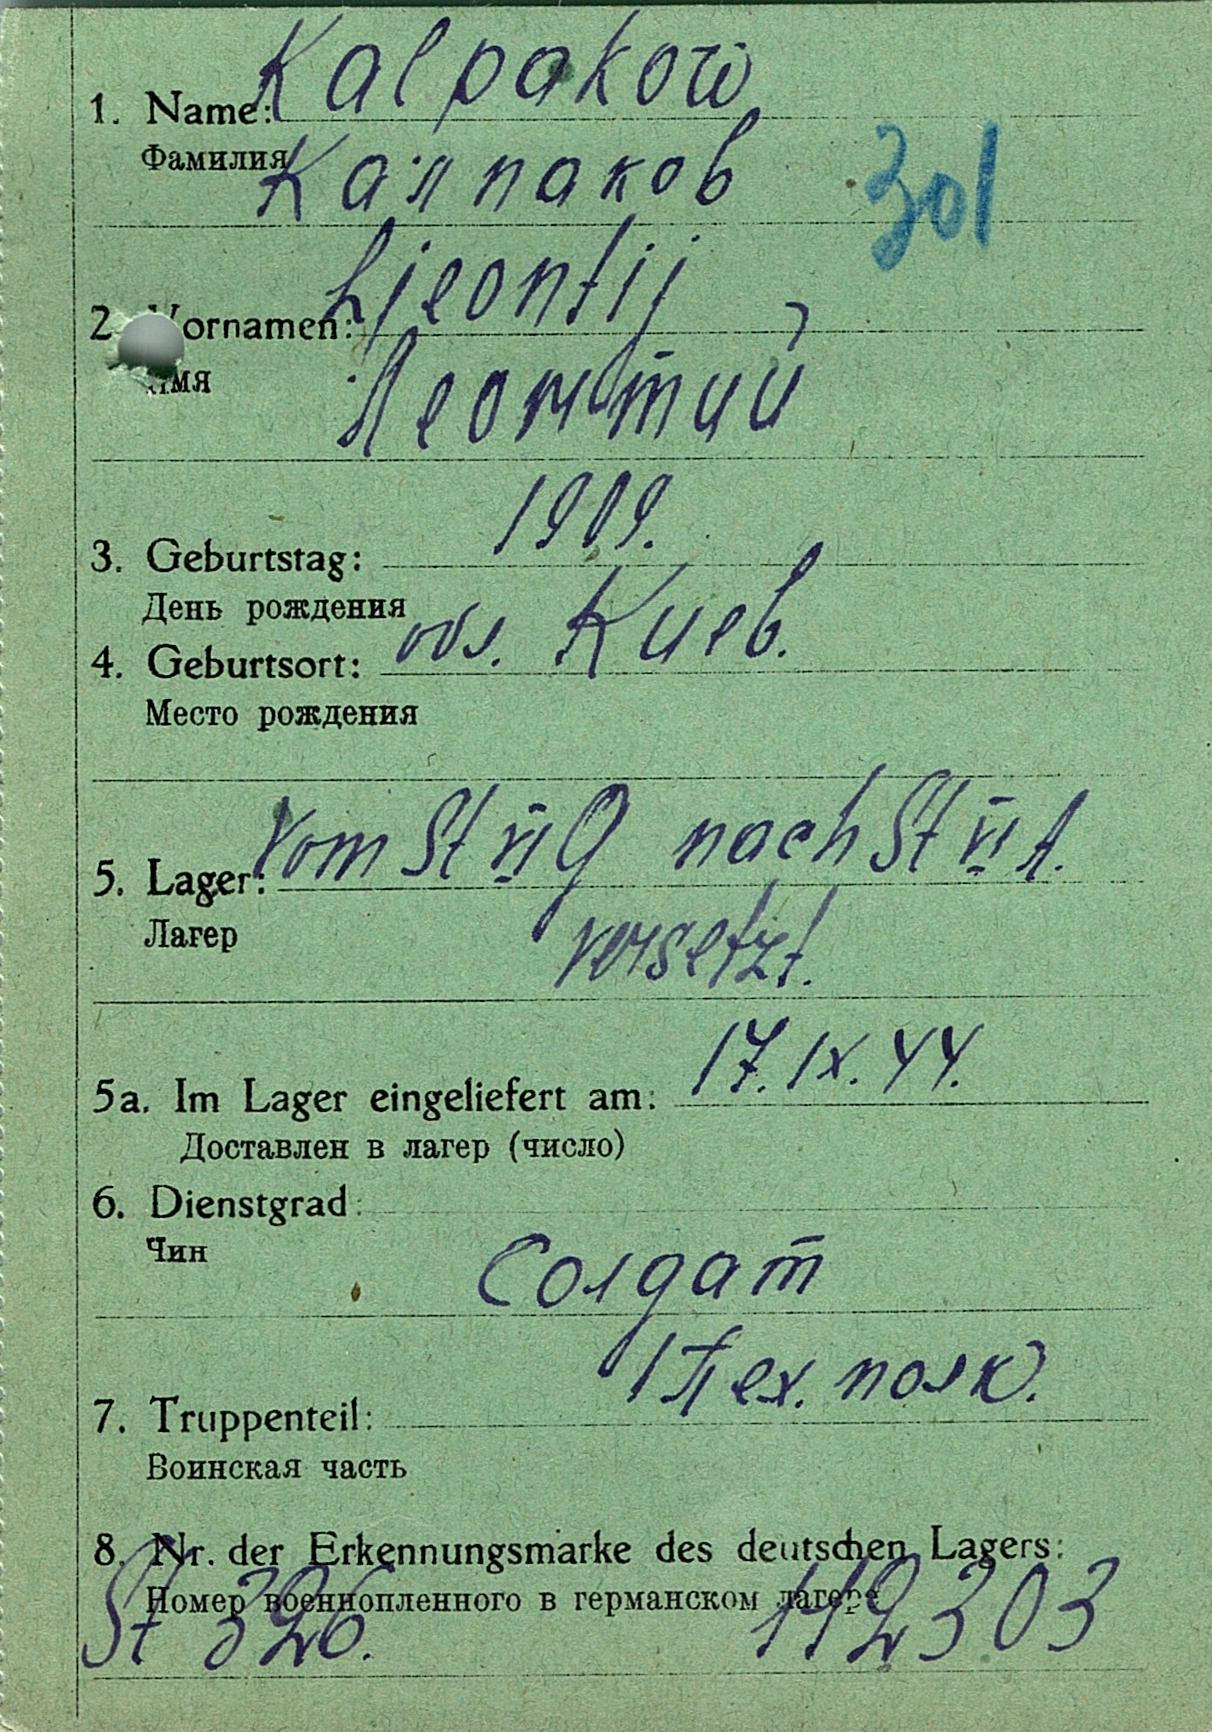 Kalpakow
1. Name:
Фамилия
Калпаков
301
Ljeontij
2. Vornamen:
Имя
Леонтий
1909.
3. Geburtstag:
День рождения
4. Geburtsort: обл. Киев.
Место рождения
5. Lager: Vom St VI G nach St VI A.
Лагер
versetzt.
5a. Im Lager eingeliefert am: 17. IX. 44.
Доставлен в лагер (число)
6. Dienstgrad:
Чин
Солдат
1 Пех. полк.
7. Truppenteil:
Воинская часть
8. Nr. der Erkennungsmarke des deutschen Lagers:
Номер военнопленного в германском лагере
St 326. 112303